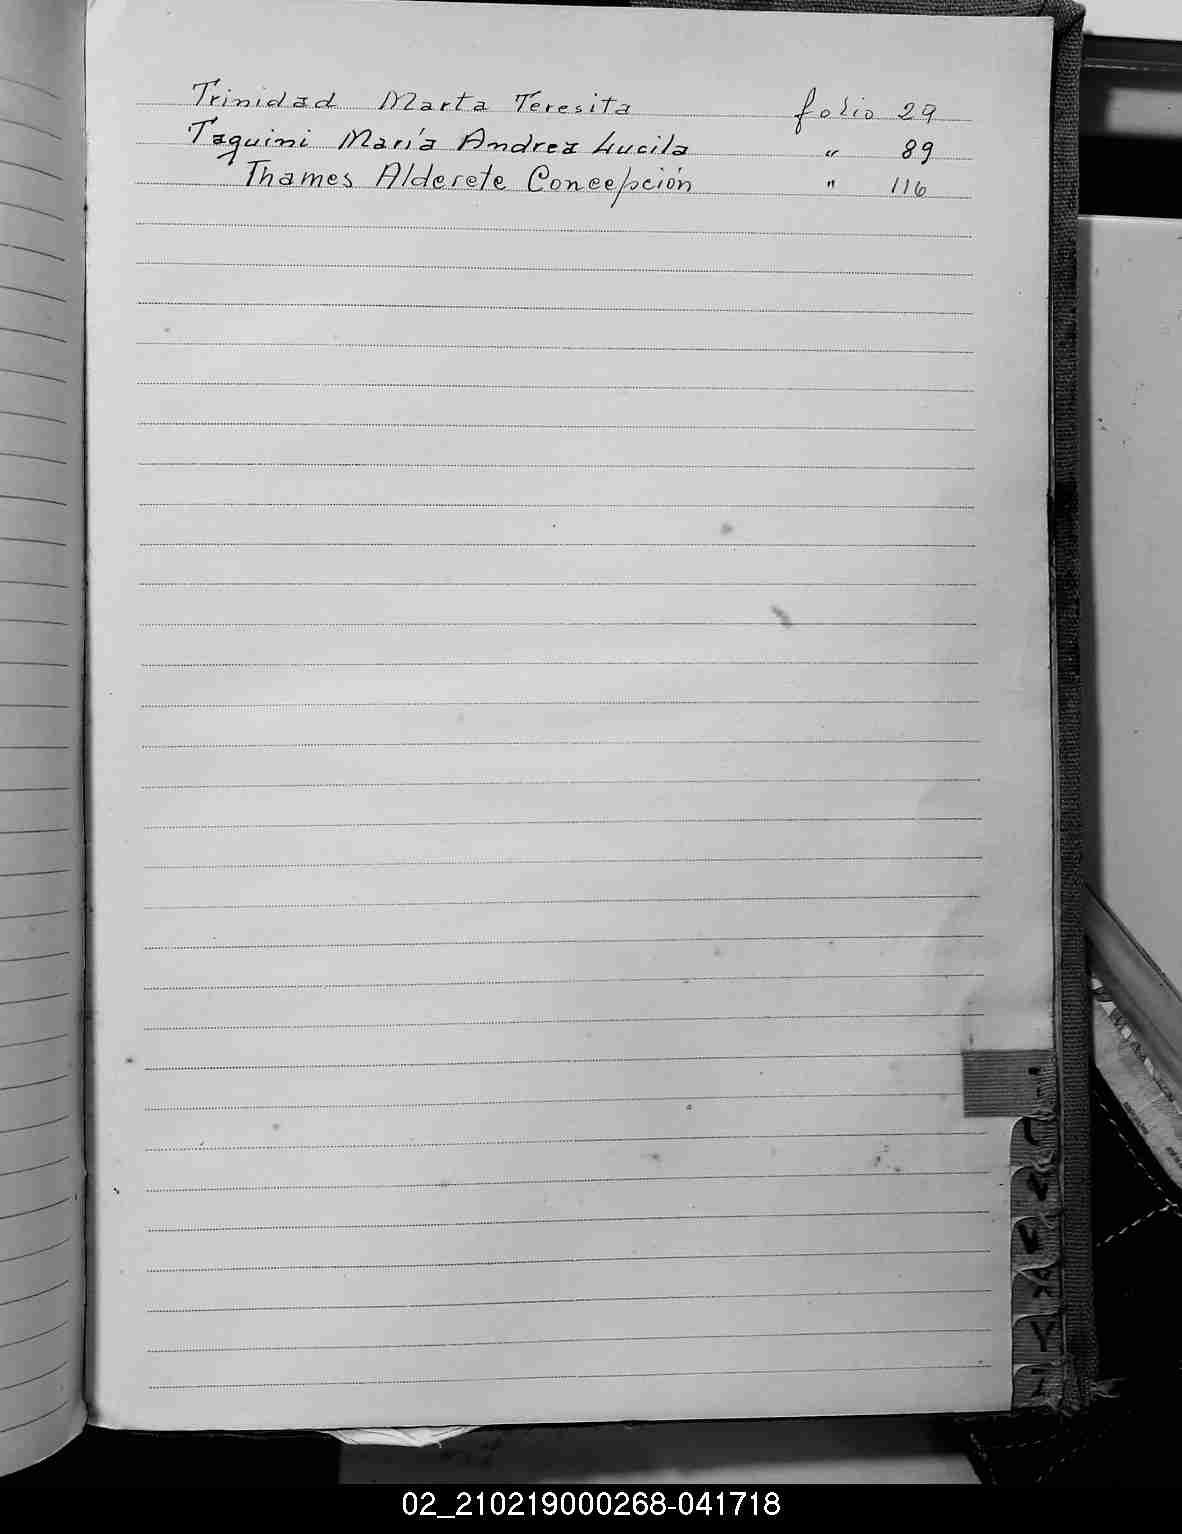 Trinidad Marta Teresita folio 29
Taquini María Andrea Lucila " 89
Thames Alderete Concepción " 116
T
U
V
X
Y
Z
02_210219000268-041718